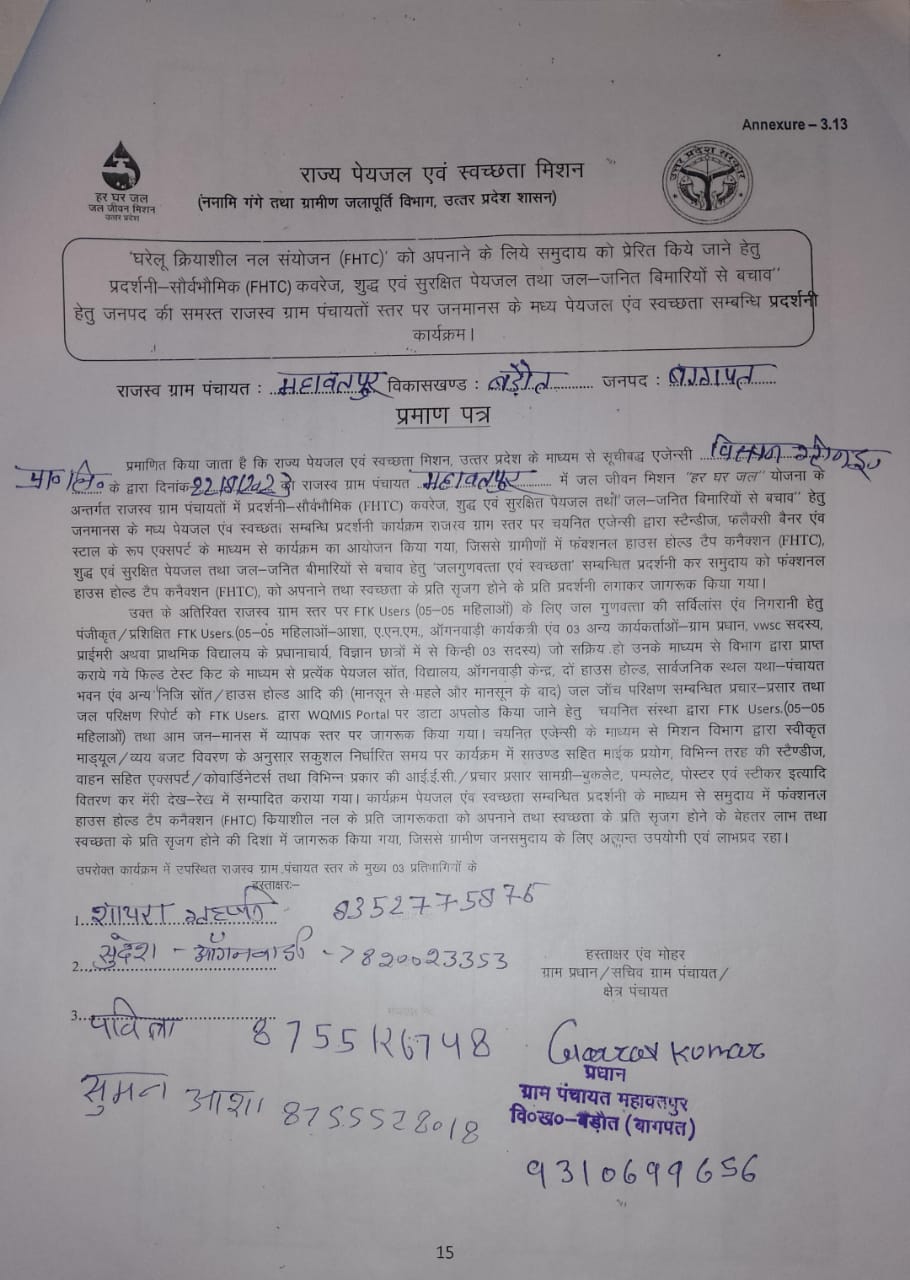 Annexure – 3.13
हर घर जल
जल जीवन मिशन
उत्तर प्रदेश
उत्तर प्रदेश सरकार
राज्य पेयजल एवं स्वच्छता मिशन
(ननामि गंगे तथा ग्रामीण जलापूर्ति विभाग, उत्तर प्रदेश शासन)
'घरेलू क्रियाशील नल संयोजन (FHTC)' को अपनाने के लिये समुदाय को प्रेरित किये जाने हेतु
प्रदर्शनी–सौर्वभौमिक (FHTC) कवरेज, शुद्ध एवं सुरक्षित पेयजल तथा जल–जनित बिमारियों से बचाव"
हेतु जनपद की समस्त राजस्व ग्राम पंचायतों स्तर पर जनमानस के मध्य पेयजल एंव स्वच्छता सम्बन्धि प्रदर्शनी
कार्यक्रम।
राजस्व ग्राम पंचायत : महावतपुर विकासखण्ड : बड़ौत जनपद : बागपत
प्रमाण पत्र
प्रमाणित किया जाता है कि राज्य पेयजल एवं स्वच्छता मिशन, उत्तर प्रदेश के माध्यम से सूचीबद्ध एजेन्सी
प्रा० लि० के द्वारा दिनांक को राजस्व ग्राम पंचायत महावतपुर में जल जीवन मिशन "हर घर जल" योजना के
अन्तर्गत राजस्व ग्राम पंचायतों में प्रदर्शनी–सौर्वभौमिक (FHTC) कवरेज, शुद्ध एवं सुरक्षित पेयजल तथा जल–जनित बिमारियों से बचाव" हेतु
जनमानस के मध्य पेयजल एंव स्वच्छता सम्बन्धि प्रदर्शनी कार्यक्रम राजस्व ग्राम स्तर पर चयनित एजेन्सी द्वारा स्टैन्डीज, फलैक्सी बैनर एंव
स्टाल के रूप एक्सपर्ट के माध्यम से कार्यक्रम का आयोजन किया गया, जिससे ग्रामीणों में फंक्शनल हाउस होल्ड टैप कनैक्शन (FHTC),
शुद्ध एवं सुरक्षित पेयजल तथा जल–जनित बीमारियों से बचाव हेतु 'जलगुणवत्ता एवं स्वच्छता' सम्बन्धित प्रदर्शनी कर समुदाय को फंक्शनल
हाउस होल्ड टैप कनैक्शन (FHTC), को अपनाने तथा स्वच्छता के प्रति सृजग होने के प्रति प्रदर्शनी लगाकर जागरूक किया गया।
उक्त के अतिरिक्त राजस्व ग्राम स्तर पर FTK Users (05–05 महिलाओं) के लिए जल गुणवत्ता की सर्विलांस एंव निगरानी हेतु
पंजीकृत/प्रशिक्षित FTK Users.(05–05 महिलाओं–आशा, ए.एन.एम., ऑगनवाड़ी कार्यकत्री एंव 03 अन्य कार्यकर्ताओं–ग्राम प्रधान, vwsc सदस्य,
प्राईमरी अथवा प्राथमिक विद्यालय के प्रधानाचार्य, विज्ञान छात्रों में से किन्ही 03 सदस्य) जो सक्रिय हो उनके माध्यम से विभाग द्वारा प्राप्त
कराये गये फिल्ड टेस्ट किट के माध्यम से प्रत्येक पेयजल स्रौत, विद्यालय, ऑगनवाड़ी केन्द्र, दों हाउस होल्ड, सार्वजनिक स्थल यथा–पंचायत
भवन एंव अन्य निजि स्रौत/हाउस होल्ड आदि की (मानसून से पहले और मानसून के बाद) जल जाँच परिक्षण सम्बन्धित प्रचार–प्रसार तथा
जल परिक्षण रिपोर्ट को FTK Users. द्वारा WQMIS Portal पर डाटा अपलोड किया जाने हेतु चयनित संस्था द्वारा FTK Users.(05–05
महिलाओं) तथा आम जन–मानस में व्यापक स्तर पर जागरूक किया गया। चयनित एजेन्सी के माध्यम से मिशन विभाग द्वारा स्वीकृत
माड्यूल/व्यय बजट विवरण के अनुसार सकुशल निर्धारित समय पर कार्यक्रम में साउण्ड सहित माईक प्रयोग, विभिन्न तरह की स्टैण्डीज,
वाहन सहित एक्सपर्ट/कोवार्डिनेटर्स तथा विभिन्न प्रकार की आई.ई.सी./प्रचार प्रसार सामग्री–बुकलेट, पम्पलेट, पोस्टर एवं स्टीकर इत्यादि
वितरण कर मेंरी देख–रेख में सम्पादित कराया गया। कार्यक्रम पेयजल एंव स्वच्छता सम्बन्धित प्रदर्शनी के माध्यम से समुदाय में फंक्शनल
हाउस होल्ड टैप कनैक्शन (FHTC) कियाशील नल के प्रति जागरूकता को अपनाने तथा स्वच्छता के प्रति सृजग होने के बेहतर लाभ तथा
स्वच्छता के प्रति सृजग होने की दिशा में जागरूक किया गया, जिससे ग्रामीण जनसमुदाय के लिए अत्यन्त उपयोगी एवं लाभप्रद रहा।
उपरोक्त कार्यक्रम में उपस्थित राजस्व ग्राम पंचायत स्तर के मुख्य 03 प्रतिभागियों के
हस्ताक्षरः–
1. शायरा 8352775876
2. सुदेश - ऑगनवाडी - 7820023353
हस्ताक्षर एंव मोहर
ग्राम प्रधान/सचिव ग्राम पंचायत/
क्षेत्र पंचायत
3. पविता 8755126748
Gaurav Kumar
प्रधान
ग्राम पंचायत महावतपुर
वि०ख०–बड़ौत (बागपत)
सुमन आशा 8755528018
9310699656
15